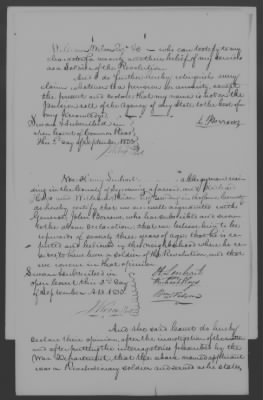 William Wilson Esq &c — who can testify to my
character for veracity and their belief of my services
as a Soldier of the Revolution.
And I do further hereby relinquish every
claim whatever to a pension or annuity, except
the present and declare that my name is not on the
pension roll of the Agency of any State to the best of
my knowledge
Sworn & subscribed in
open Court of Common Pleas
this day of September 1833
We, Henry a clergyman resi-
ding in the county of Lycoming aforesaid, and
Hays and William Wilson
do hereby certify that we are well acquainted with
General John Burrows, who has subscribed and sworn
to the above declaration; that we believe him to be
upwards of seventy three years of age; that he is re-
puted and believed in the neighbourhood where he re-
sides to have been a soldier of the Revolution, and that
we concur in that opinion
Sworn & subscribed in
open Court this 3rd day
of September A.D. 1833
And the said Court do hereby
declare their opinion, after the investigation of the matter
and after putting the interrogatories prescribed by the
War Department, that the above named applicant
was a Revolutionary soldier and served as he states,